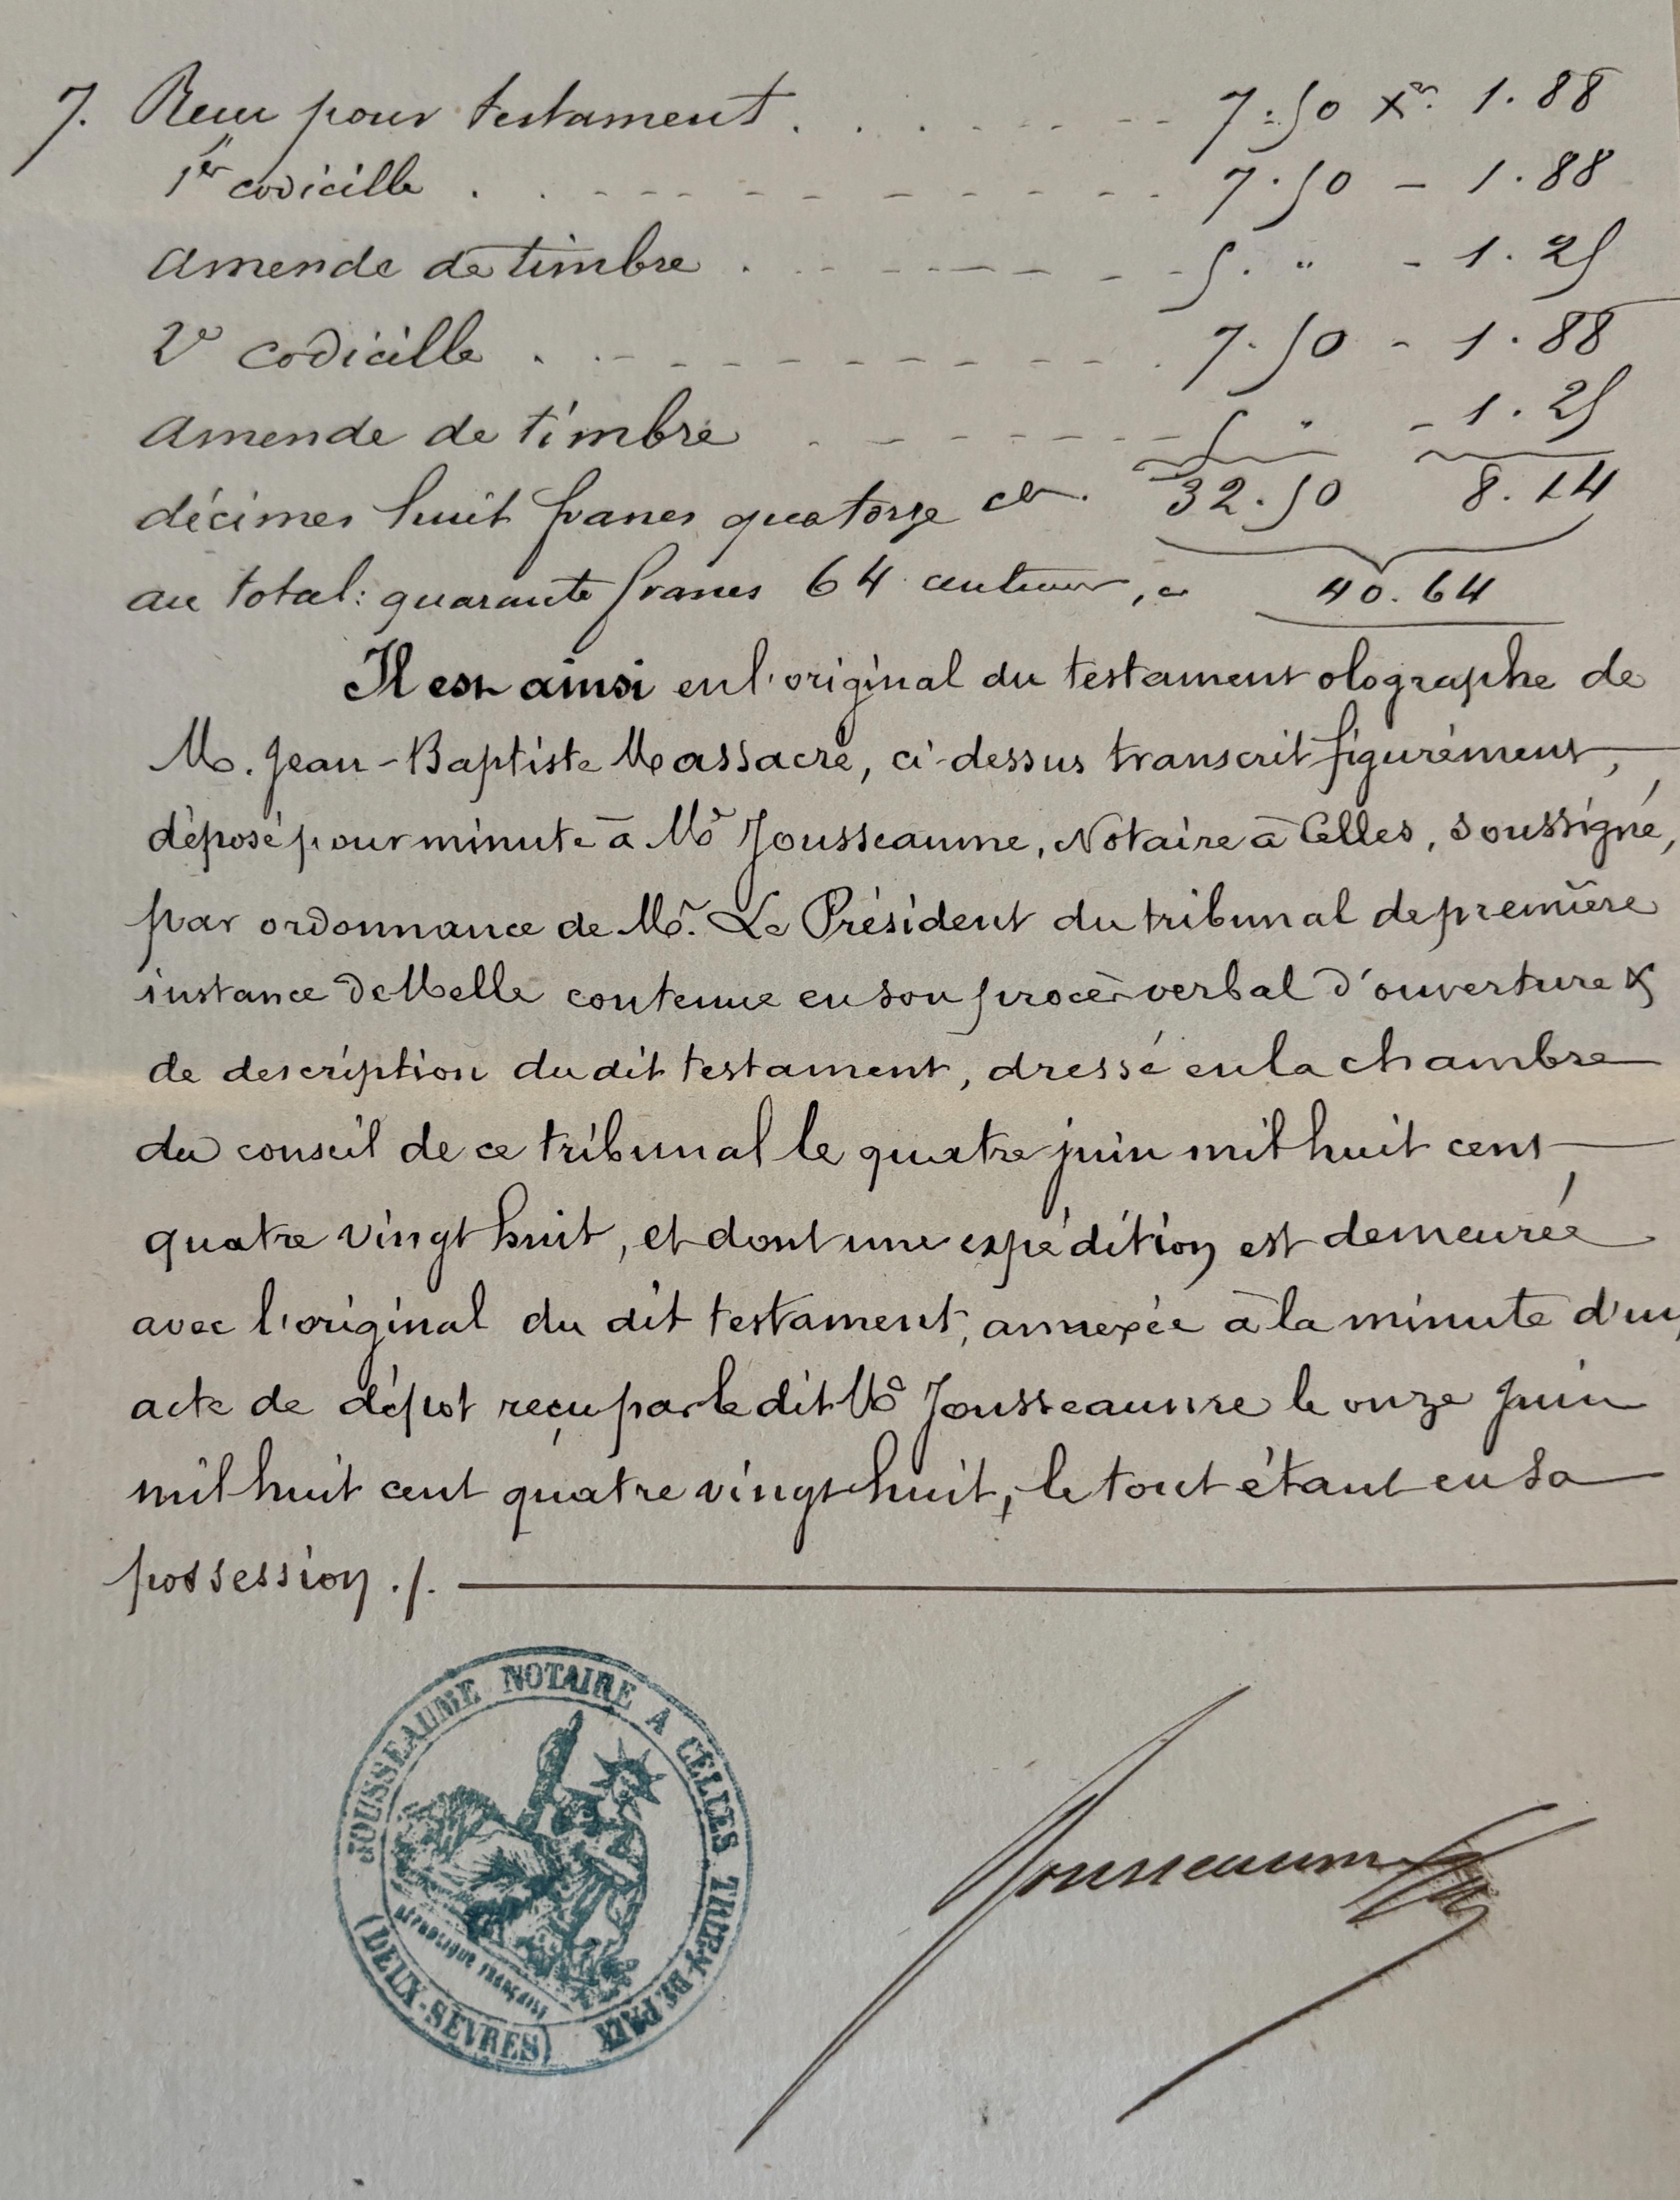 7. Reçu pour testament . . . . . . . . 7.50 Xes 1.88
1er codicille . . . . . . . . 7.50 - 1.88
amende de timbre . . . . . . . . 5. " - 1.25
2e codicille . . . . . . . . 7.50 - 1.88
amende de timbre . . . . . . . . 5 " - 1.25
décimes huit francs quatorze ces. 32.50 8.14
au total: quarante francs 64 centimes, 40.64
Il est ainsi en l'original du testament olographe de
M. Jean-Baptiste Massacré, ci-dessus transcrit figurément,
déposé pour minute à Me Jousseaume, Notaire à Celles, soussigné,
par ordonnance de Mr. Le Président du tribunal de première
instance de Melle contenue en son procès verbal d'ouverture &
de description du dit testament, dressé en la chambre
du conseil de ce tribunal le quatre juin mil huit cent
quatre vingt huit, et dont une expédition est demeurée
avec l'original du dit testament, annexée à la minute d'un
acte de dépot reçu par le dit Me Jousseaume le onze Juin
mil huit cent quatre vingt huit, le tout étant en sa
possession ./.
JOUSSEAUME NOTAIRE A CELLES
(DEUX-SÈVRES)
RÉPUBLIQUE FRANÇAISE
Jousseaume